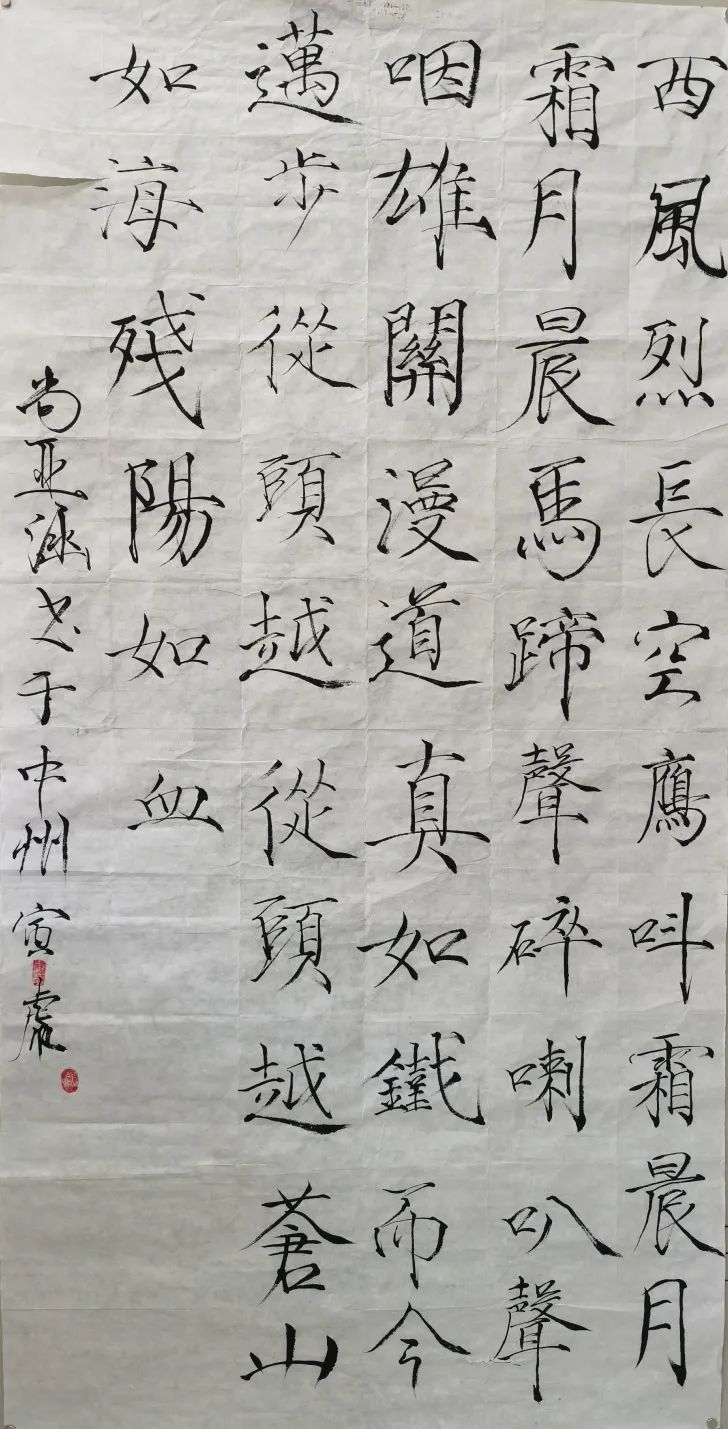 西風烈長空鷹呌霜晨月
霜月晨馬蹄聲碎喇叭聲
咽雄關漫道真如鐵而今
邁步從頭越從頭越蒼山
如海殘陽如血
尚亚涵书于中州寅虎